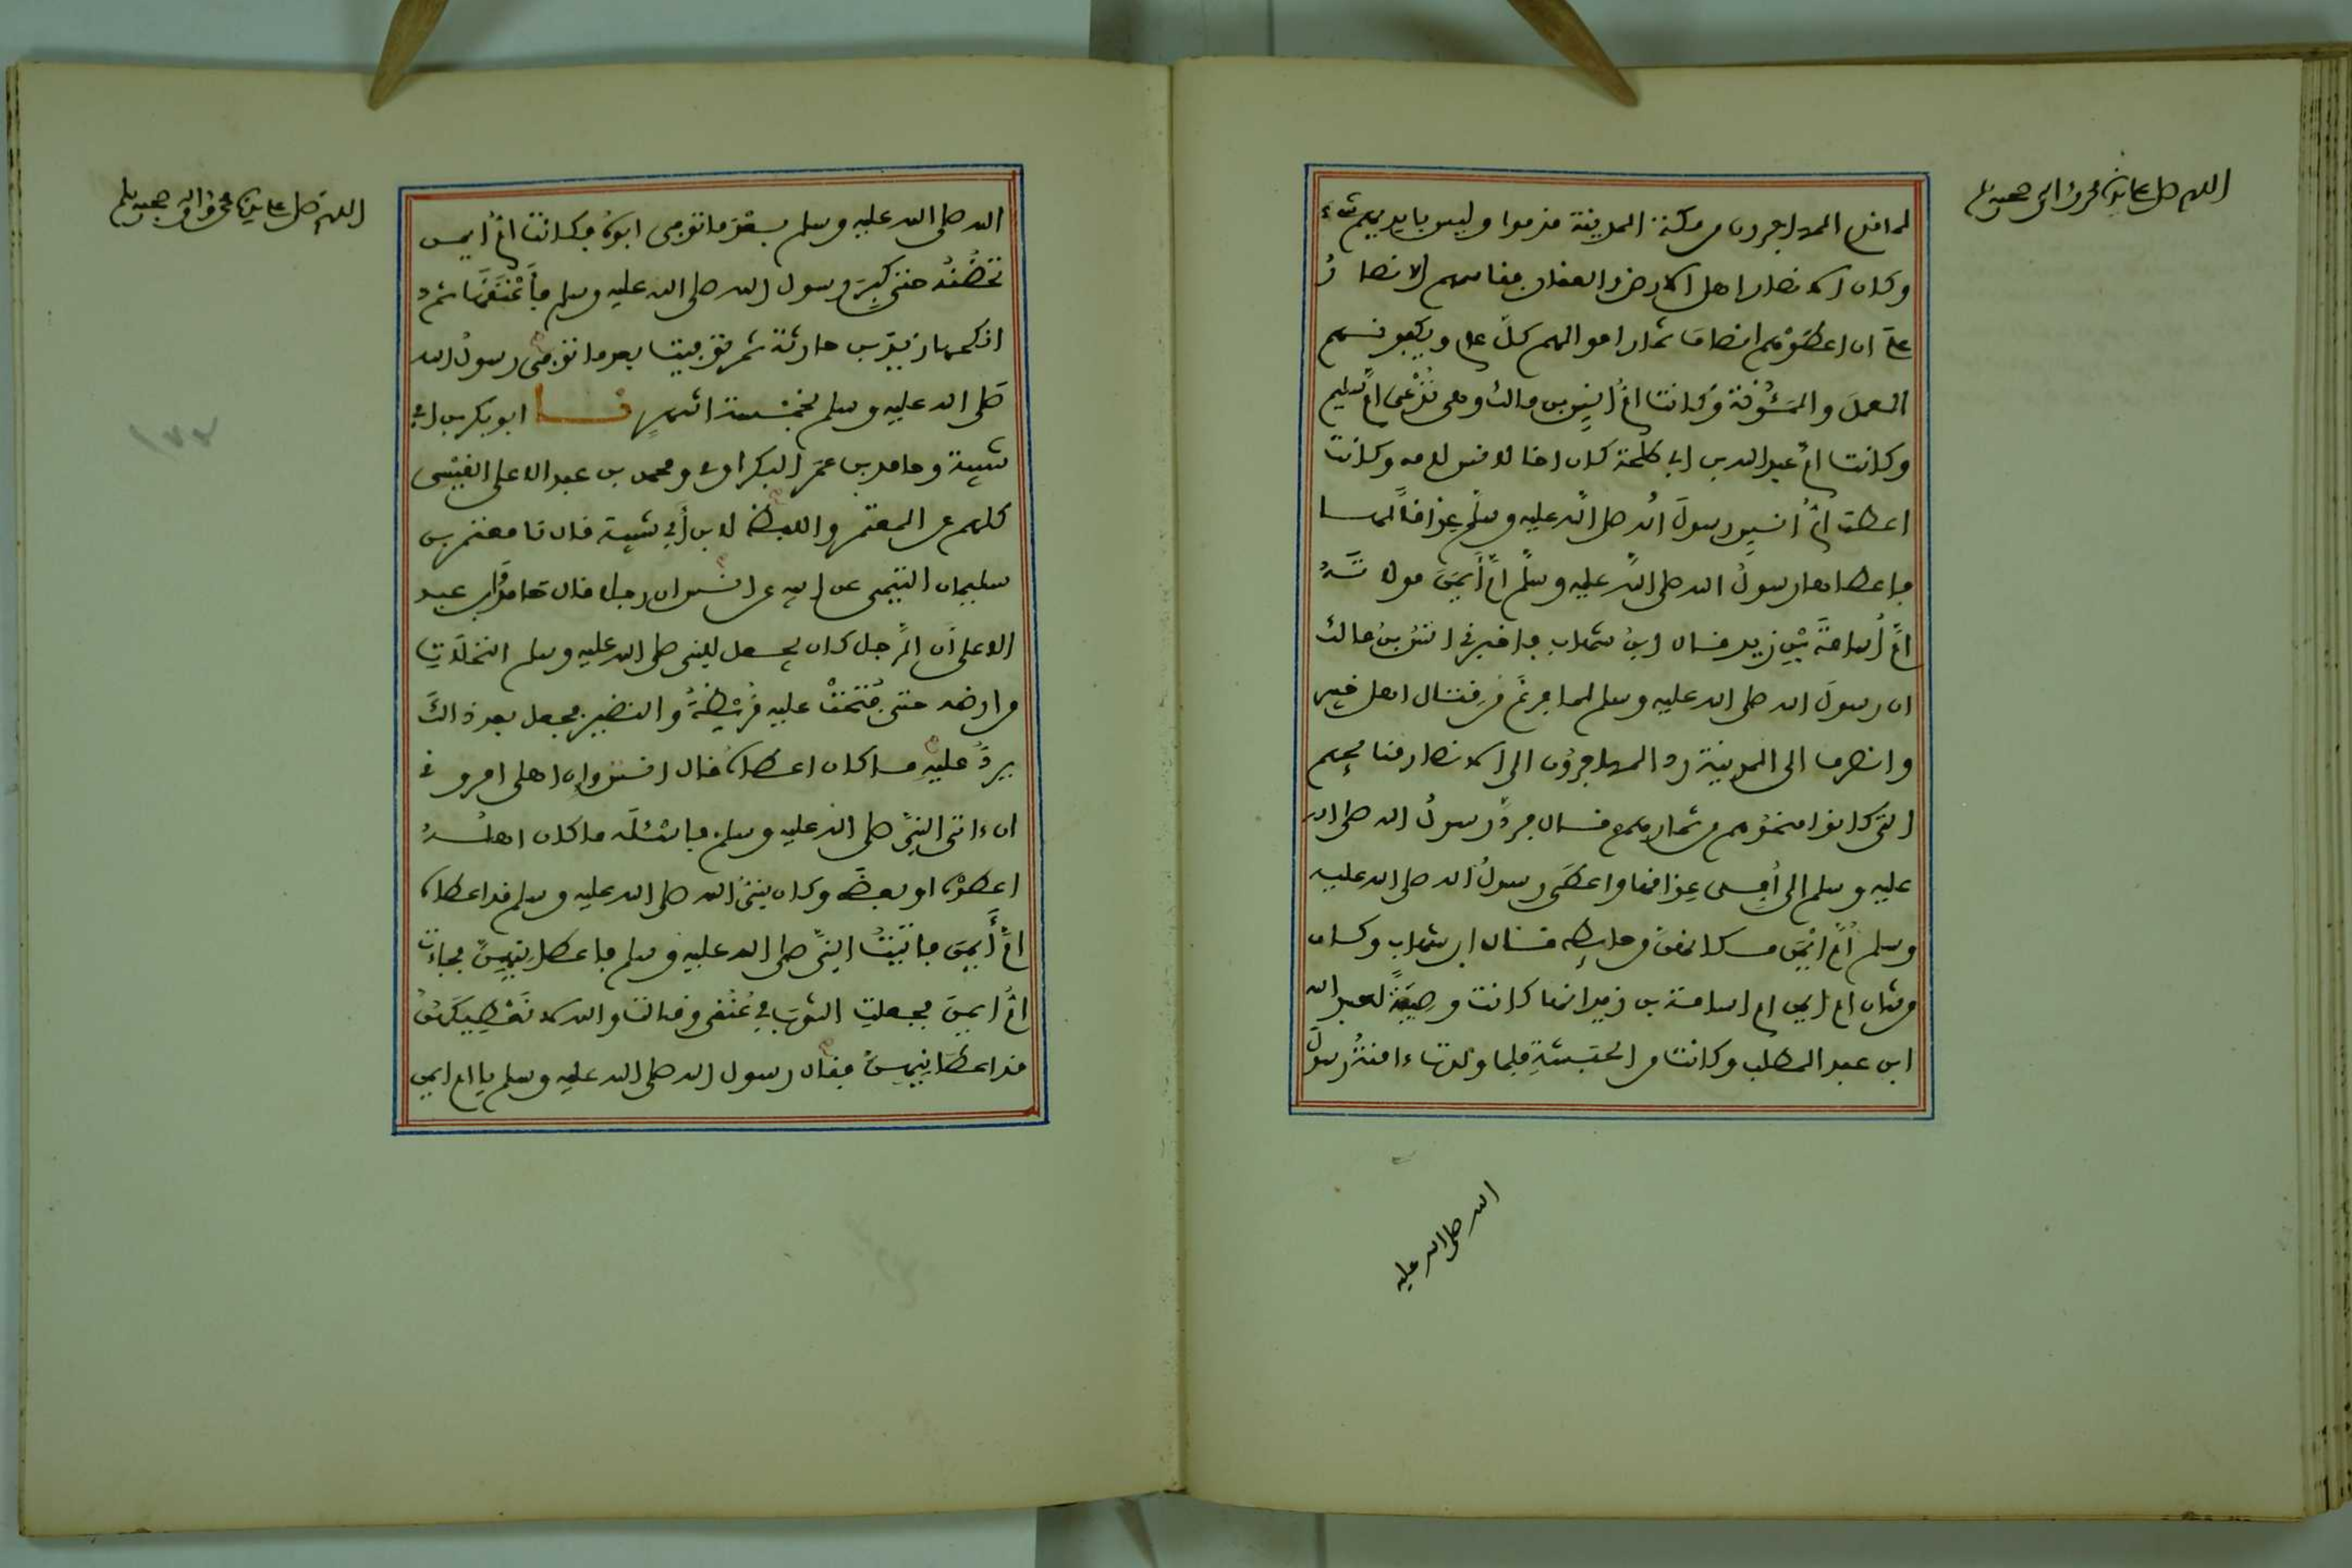 اللهم صل على سيدنا محمد واله وصحبه وسلم
لما قدم المهاجرون من مكة المدينة قدموا وليس بايديهم شيء
وكان الانصار اهل الارض والعقار فقاسمهم الانصار
على ان اعطوهم انصاف ثمار اموالهم كل عام ويكفونهم
العمل والمئونة وكانت ام انس بن مالك وهي تدعى ام سليم
وكانت ام عبد الله بن ابي طلحة كان اخا لانس لامه وكانت
اعطت ام انس رسول الله صلى الله عليه وسلم عذاقا لها
فاعطاها رسول الله صلى الله عليه وسلم ام ايمن مولاته
ام اسامة بن زيد قال ابن شهاب فاخبرني انس بن مالك
ان رسول الله صلى الله عليه وسلم لما فرغ من قتال اهل خيبر
وانصرف الى المدينة رد المهاجرون الى الانصار منايحهم
التي كانوا منحوهم من ثمارهم قال فرد رسول الله صلى الله
عليه وسلم الى امي عذاقها واعطى رسول الله صلى الله عليه
وسلم ام ايمن مكانهن من حايطه قال ابن شهاب وكان
من شان ام ايمن ام اسامة بن زيد انها كانت وصيفة لعبد الله
ابن عبد المطلب وكانت من الحبشة فلما ولدت ءامنة رسول
الله صلى الله عليه
اللهم صل على سيدنا محمد واله وصحبه وسلم
الله صلى الله عليه وسلم بعد ما توفي ابوه فكانت ام ايمن
تحضنه حتى كبر رسول الله صلى الله عليه وسلم فاعتقها ثم
انكحها زيد بن حارثة ثم توفيت بعد ما توفي رسول الله
صلى الله عليه وسلم بخمسة اشهر نا ابو بكر بن ابي
شيبة وحامد بن عمر البكراوي ومحمد بن عبد الاعلى القيسي
كلهم عن المعتمر واللفظ لابن أبي شيبة قال نا معتمر بن
سليمان التيمي عن ابيه عن انس ان رجلا قال حامد وابن عبد
الاعلى ان الرجل كان يجعل للنبي صلى الله عليه وسلم النخلات
من ارضه حتى فتحت عليه قريظة والنضير فجعل بعد ذالك
يرد عليه ما كان اعطاه قال انس وان اهلي امروني
ان ءاتي النبي صلى الله عليه وسلم فاسئله ما كان اهله
اعطوه او بعضه وكان نبي الله صلى الله عليه وسلم قد اعطاه
ام أيمن فاتيت النبي صلى الله عليه وسلم فاعطانيهن فجاءت
ام ايمن فجعلت الثوب في عنقي وقالت والله لا نعطيكهن
قد اعطانيهن فقال رسول الله صلى الله عليه وسلم يا ام ايمن